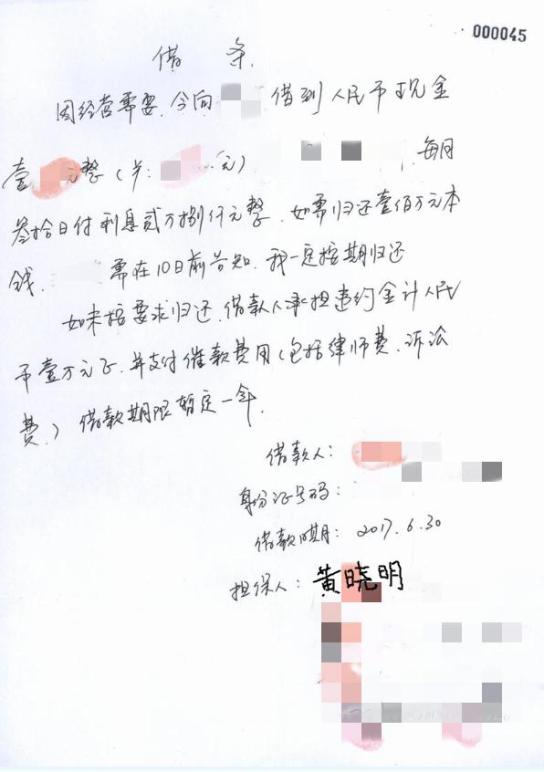 000045
借 条
因经营需要，今向 借到人民币现金
壹 元整（¥： 元） 每月
叁拾日付利息贰万捌仟元整，如需归还壹佰万元本
钱， 需在10日前告知，我一定按期归还
如未按要求归还，借款人承担违约金计人民
币壹万元正，并支付催款费用（包括律师费、诉讼
费）借款期限暂定一年。
借款人：
身份证号码：
借款日期：2017.6.30
担保人：黄晓明